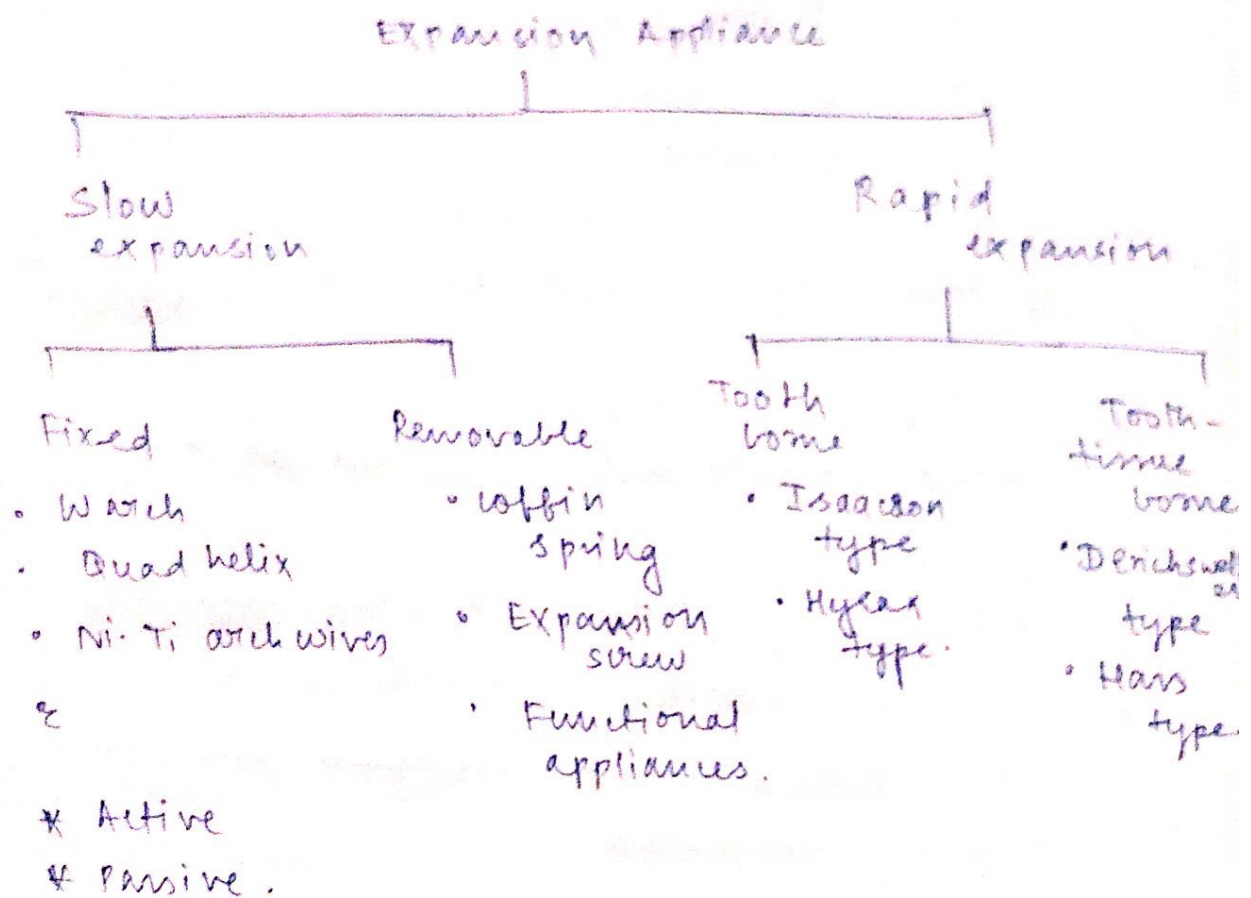 Expansion Appliance
Slow
expansion
Rapid
expansion.
Fixed
• W arch
• Quad helix
• Ni-Ti arch wires
Removable
• Coffin
spring
• Expansion
screw
• Functional
appliances.
Tooth
borne
• Isaacson
type
• Hyrax
type.
Tooth-
tissue
borne
• Derichsweil
er
type
• Hass
type.
* Active
* Passive.